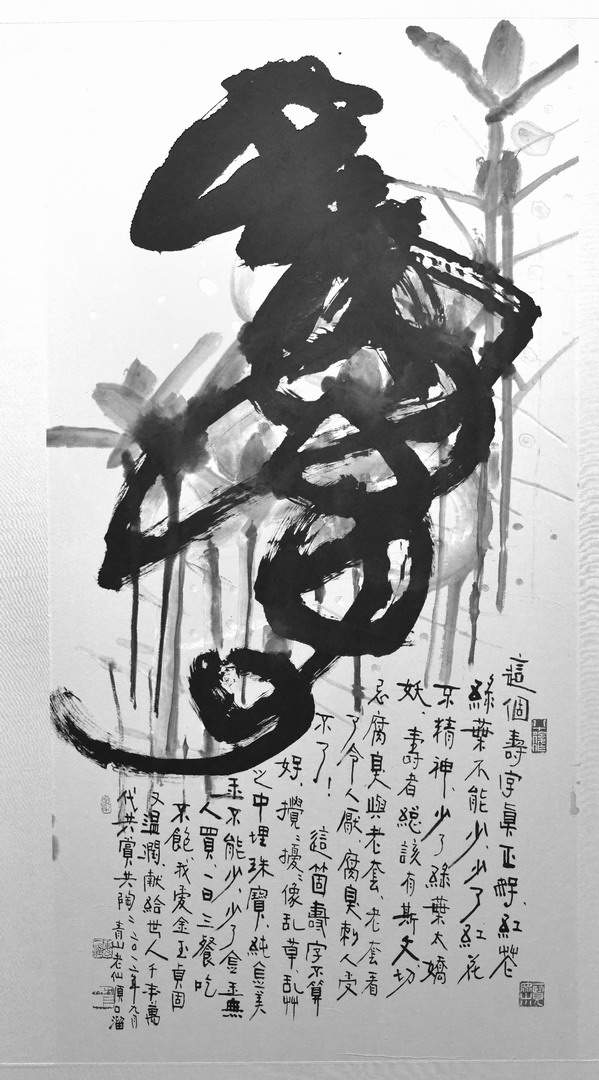 壽
這個壽字眞正好、紅花
綠葉不能少、少了紅花
不精神、少了綠葉太嬌
妖、壽者總該有斯文切
忌腐臭與老套、老套看
了令人厭、腐臭刺人受
不了！這箇壽字不算
好、攪〻擾〻像乱草、乱艸
之中埋珠寶、純金美
玉不能少、少了金玉無
人買、一日三餐吃
不飽、我愛金玉貞固
又溫潤、献給世人千秋萬
代共賞共陶、二〇一二年九月
青山老仙順口溜